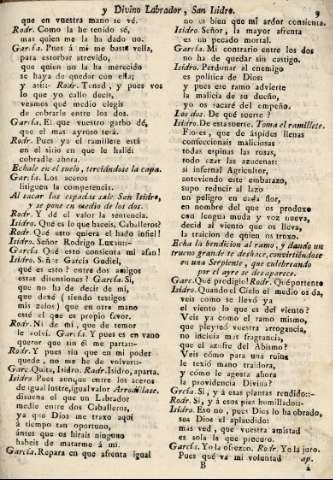 y Divino Labrador, San Isidro.
9
que en vuestra mano se vé.
Rodr. Como la he tenido sé,
mas quien me la ha dado no.
Garcia. Pues á mi me basta vella,
para estorbar atrevido,
que quien no la ha merecido
se haya de quedar con ella;
y asi: Rodr. Tened, y pues vos
lo que yo calle decis,
veamos qué medio elegís
de cobrarle entre los dos.
Garcia. El que vuestro garbo dé,
que el mas ayroso será.
Rodr. Pues ya el ramillete está
en el sitio en que le hallé:
cobradle ahora.
Echale en el suelo, terciandose la capa.
Garcia. Los aceros
litiguen la competencia.
Al sacar las espadas sale San Isidro,
y se pone en medio de los dos.
Rodr. Y dé el valor la sentencia.
Isidro. Qué es lo que haceis, Caballeros?
Rodr. Qué esto quiera el hado infiel!
Isidro. Señor Rodrigo Luxan:-
Garcia. Qué esto consienta mi afan!
Isidro. Señor Garcia Gudiel,
qué es esto? entre dos amigos
estas disensiones? Garcia. Si,
que no ha de decir de mi,
que dexé (siendo testigos
mis zelos) que en otra mano
esté el que es propio favor.
Rodr. Ni de mi, que de temor
le solté. Garcia. Y pues es en vano
querer que sin él me partan:-
Rodr. Y pues sin que en mi poder
quede, no me he de volver:-
Garc. Quita, Isidro. Rodr. Isidro, aparta.
Isidro Pues aunque entre los aceros
de igual lustre, igual valor Arrodillase.
disuena el que un Labrador
medie entre dos Caballeros,
ya que Dios me traxo aquí
á tiempo tan oportuno,
ántes que os hirais ninguno
habeis de matarme á mi.
Garcia. Repara en que afrenta igual
no es bien que mi ardor consienta.
Isidro. Señor, la mayor afrenta
es un pecado mortal.
Garcia. Mi contrario entre los dos
no ha de quedar sin castigo.
Isidro. Perdonar al enemigo
es política de Dios:
y pues ese ramo advierte
la malicia de su dueño,
yo os sacaré del empeño.
Los dos. De qué suerte?
Isidro. De esta suerte. Toma el ramillete.
Flores, que de áspides llenas
confeccionais maliciosas
todas espinas las rosas,
todo azar las azucenas:
si infernal Agricultor,
entreviendo este embarazo,
supo reducir al lazo
un peligro en cada flor,
en nombre del que os produce
con lengua muda y voz nueva,
decid al viento que os lleva,
la traicion de quien os truxo.
Echa la bendicion al ramo, y dando un
trueno grande se deshace, convirtiéndose
en una Serpiente, que culebreando
por el ayre se desaparece.
Garc. Qué prodigio! Rodr. Qué portento
Isidro. Quando el Cielo el medio os da,
veis como se llevó ya
el viento lo que es del viento?
Veis ya como el ramo mismo,
que pleyteó vuestra arrogancia,
no indicia mas fragrancia,
que el azufre del Abismo?
Veis cómo para una ruina
le texió mano traidora,
y cómo le agosta ahora
la providencia Divina?
Garcia. Si, y á esas plantas rendido:-
Rodr. Si, y á esos pies humillado:-
Isidro. Eso no, pues Dios lo ha obrado,
sea Dios el aplaudido:
mas ved, que vuestra amistad
es sola la que procuro.
Garcia. Yo la ofrezco. Rodr. Yo la juro.
Pues qué va mi voluntad ap.
B